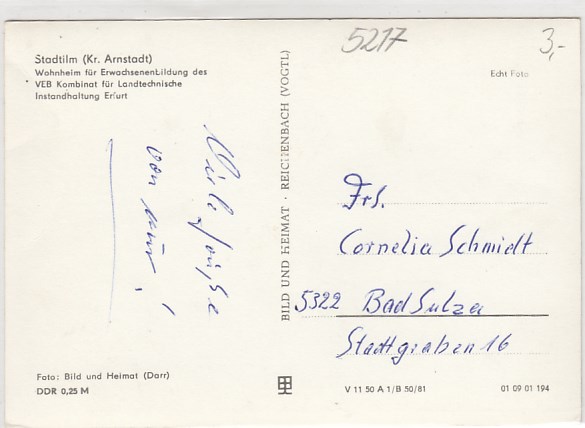 5217
3,-
Stadtilm (Kr. Arnstadt)
Wohnheim für Erwachsenenbildung des
VEB Kombinat für Landtechnische
Instandhaltung Erfurt
Echt Foto
Viele Grüße
von mir!
BILD UND HEIMAT · REICHENBACH (VOGTL)
Frs.
Cornelia Schmidt
5322 Bad Sulza
Stadtgraben 16
Foto: Bild und Heimat (Darr)
DDR 0,25 M
V 11 50 A 1/B 50/81
01 09 01 194